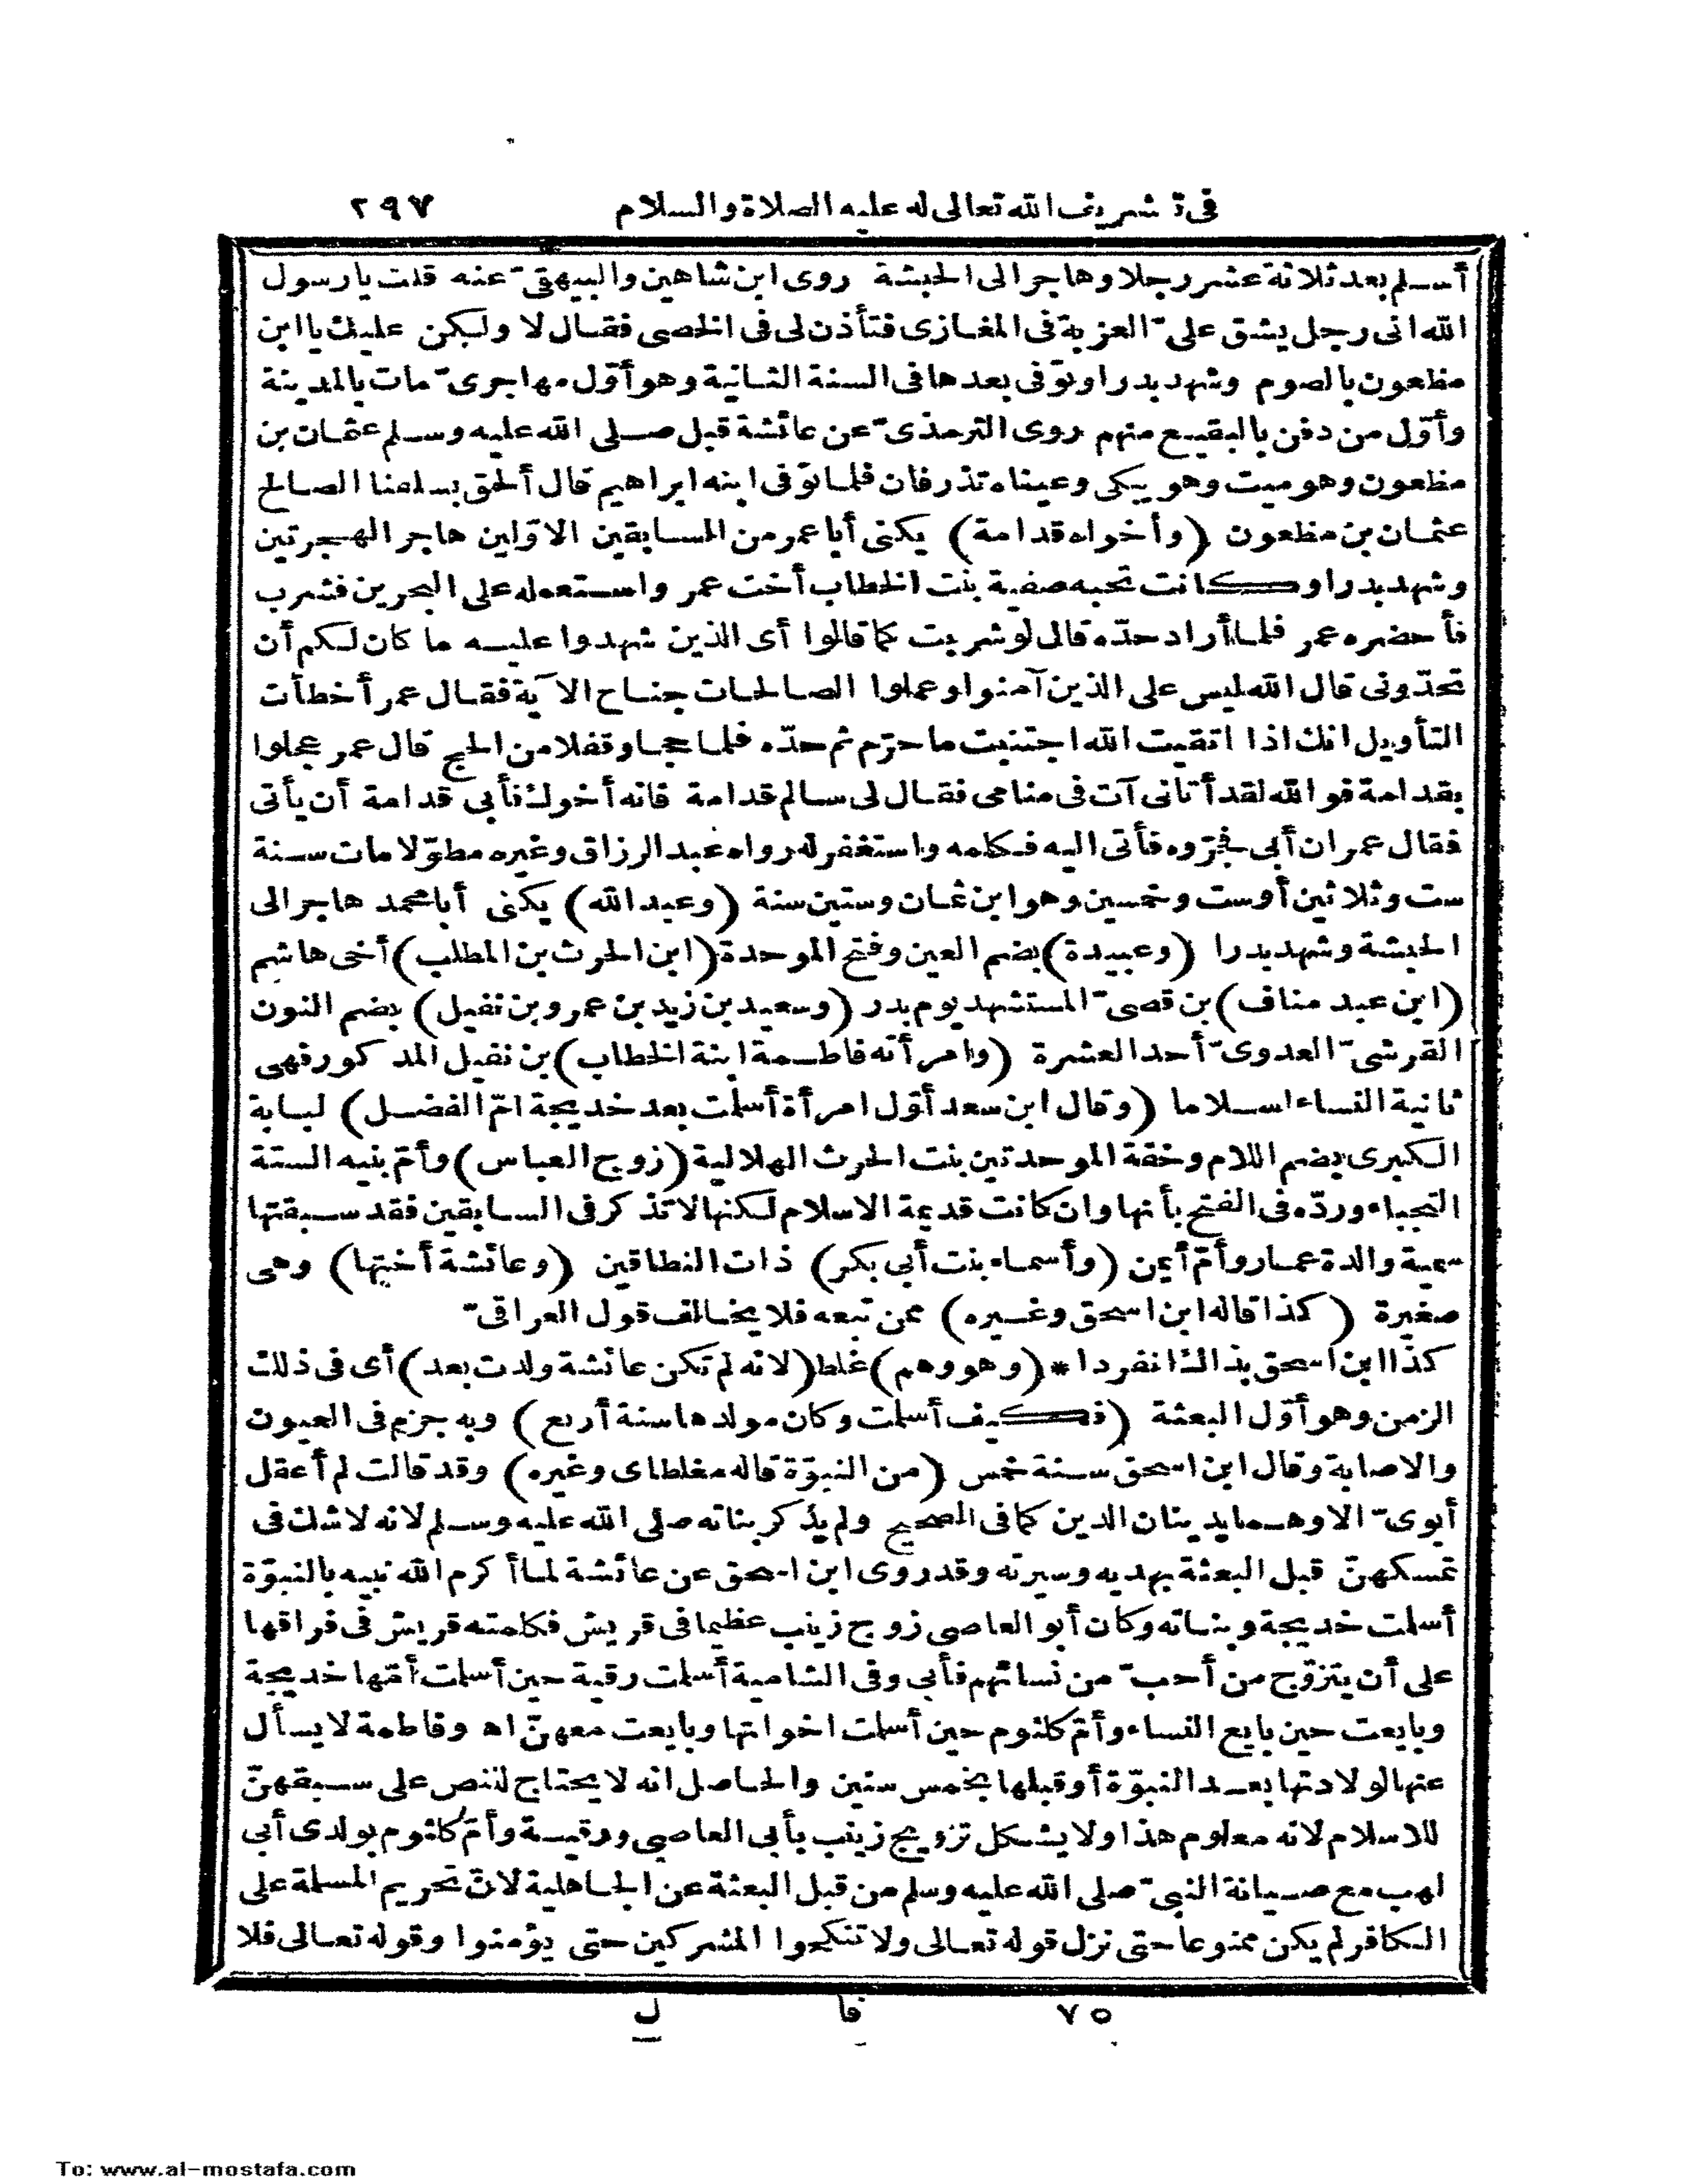 فى تشريف الله تعالى له عليه الصلاة والسلام ٢٩٧
أسلم بعد ثلاثة عشر رجلا وهاجر الى الحبشة روى ابن شاهين والبيهقىّ عنه قلت يارسول
الله انى رجل يشق علىّ العزبة فى المغازى فتأذن لى فى الخصى فقال لا ولكن عليك ياابن
مظعون بالصوم وشهد بدرا وتوّفى بعدها فى السنة الثانية وهو أوّل مهاجرىّ مات بالمدينة
وأوّل من دفن بالبقيع منهم روى الترمذىّ عن عائشة قبل صلى الله عليه وسلم عثمان بن
مظعون وهو ميت وهو يبكى وعيناه تذرفان فلما توّفى ابنه ابراهيم قال ألحق بسلفنا الصالح
عثمان بن مظعون (وأخواه قدامة) يكنى أبا عمر من السابقين الاوّلين هاجر الهجرتين
وشهد بدرا وكانت تحبه صفية بنت الخطاب أخت عمر واستعمله على البحرين فشرب
فأحضره عمر فلما أراد حدّه قال لو شربت كما قالوا أى الذين شهدوا عليه ما كان لكم أن
تحدّونى قال الله ليس على الذين آمنوا وعملوا الصالحات جناح الآية فقال عمر أخطأت
التأويل انك اذا اتقيت الله اجتنبت ما حرّم ثم حدّه فلما حجا وقفلا من الحج قال عمر عجلوا
بقدامة فوالله لقد أتانى آت فى منامى فقال لى سالم قدامة فانه أخوك فأبى قدامة أن يأتى
فقال عمر ان أبى فجرّوه فأتى اليه فكلمه واستغفر له رواه عبد الرزاق وغيره مطوّلا مات سنة
ست وثلاثين أوست وخمسين وهو ابن ثمان وستين سنة (وعبد الله) يكنى أبا محمد هاجر الى
الحبشة وشهد بدرا (وعبيدة) بضم العين وفتح الموحدة (ابن الحرث بن المطلب) أخى هاشم
(ابن عبد مناف) بن قصىّ المستشهد يوم بدر (وسعيد بن زيد بن عمرو بن نفيل) بضم النون
القرشىّ العدوىّ أحد العشرة (وامرأته فاطمة ابنة الخطاب) بن نفيل المذكور فهى
ثانية النساء اسلاما (وقال ابن سعد أوّل امرأة أسلمت بعد خديجة امّ الفضل) لبابة
الكبرى بضم اللام وخفة الموحدتين بنت الحرث الهلالية (زوج العباس) وأمّ بنيه الستة
النجباء وردّه فى الفتح بأنها وان كانت قديمة الاسلام لكنها لا تذكر فى السابقين فقد سبقتها
سمية والدة عمار وأمّ أيمن (وأسماء بنت أبى بكر) ذات النطاقين (وعائشة أختها) وهى
صغيرة (كذا قاله ابن اسحق وغيره) ممن تبعه فلا يخالف قول العراقىّ
كذا ابن اسحق بذاك انفردا * (وهو وهم) غلط (لانه لم تكن عائشة ولدت بعد) أى فى ذلك
الزمن وهو أوّل البعثة (فكيف أسلمت وكان مولدها سنة أربع) وبه جزم فى العيون
والاصابة وقال ابن اسحق سنة خمس (من النبوّة قاله مغلطاى وغيره) وقد قالت لم أعقل
أبوىّ الا وهما يدينان الدين كما فى الصحيح ولم يذكر بناته صلى الله عليه وسلم لانه لا شك فى
تمسكهنّ قبل البعثة بهديه وسيرته وقد روى ابن اسحق عن عائشة لما أكرم الله نبيه بالنبوّة
أسلمت خديجة وبناته وكان أبو العاصى زوج زينب عظيما فى قريش فكلمته قريش فى فراقها
على أن يتزوّج من أحبّ من نسائهم فأبى وفى الشامية أسلمت رقية حين أسلمت أمّها خديجة
وبايعت حين بايع النساء وأمّ كلثوم حين أسلمت اخواتها وبايعت معهنّ اه وفاطمة لا يسأل
عنها لولادتها بعد النبوّة أو قبلها بخمس سنين والحاصل انه لا يحتاج للنص على سبقهنّ
للاسلام لانه معلوم هذا ولا يشكل تزويج زينب بأبى العاصى ورقية وأمّ كلثوم بولدى أبى
لهب مع صيانة النبىّ صلى الله عليه وسلم من قبل البعثة عن الجاهلية لانّ تحريم المسلمة على
الكافر لم يكن ممنوعا حتى نزل قوله تعالى ولا تنكحوا المشركين حتى يؤمنوا وقوله تعالى فلا
٧٥ قا ل
To: www.al-mostafa.com